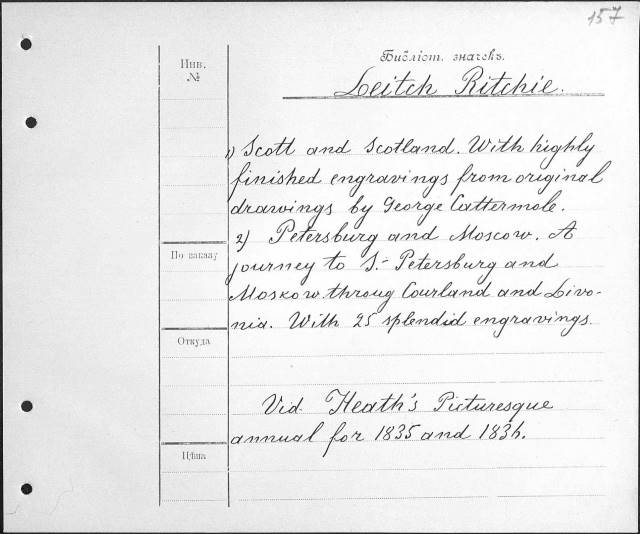 157
Библіот. значекъ.
Инв.
№
Leitch Ritchie.
1) Scott and Scotland. With highly
finished engravings from original
drawings by George Cattermole.
2) Petersburg and Moscow. A
По заказу
journey to S.-Petersburg and
Moskow throug Courland and Livo-
nia. With 25 splendid engravings.
Откуда
Vid. Heath's Picturesque
annual for 1835 and 1836.
Цѣна